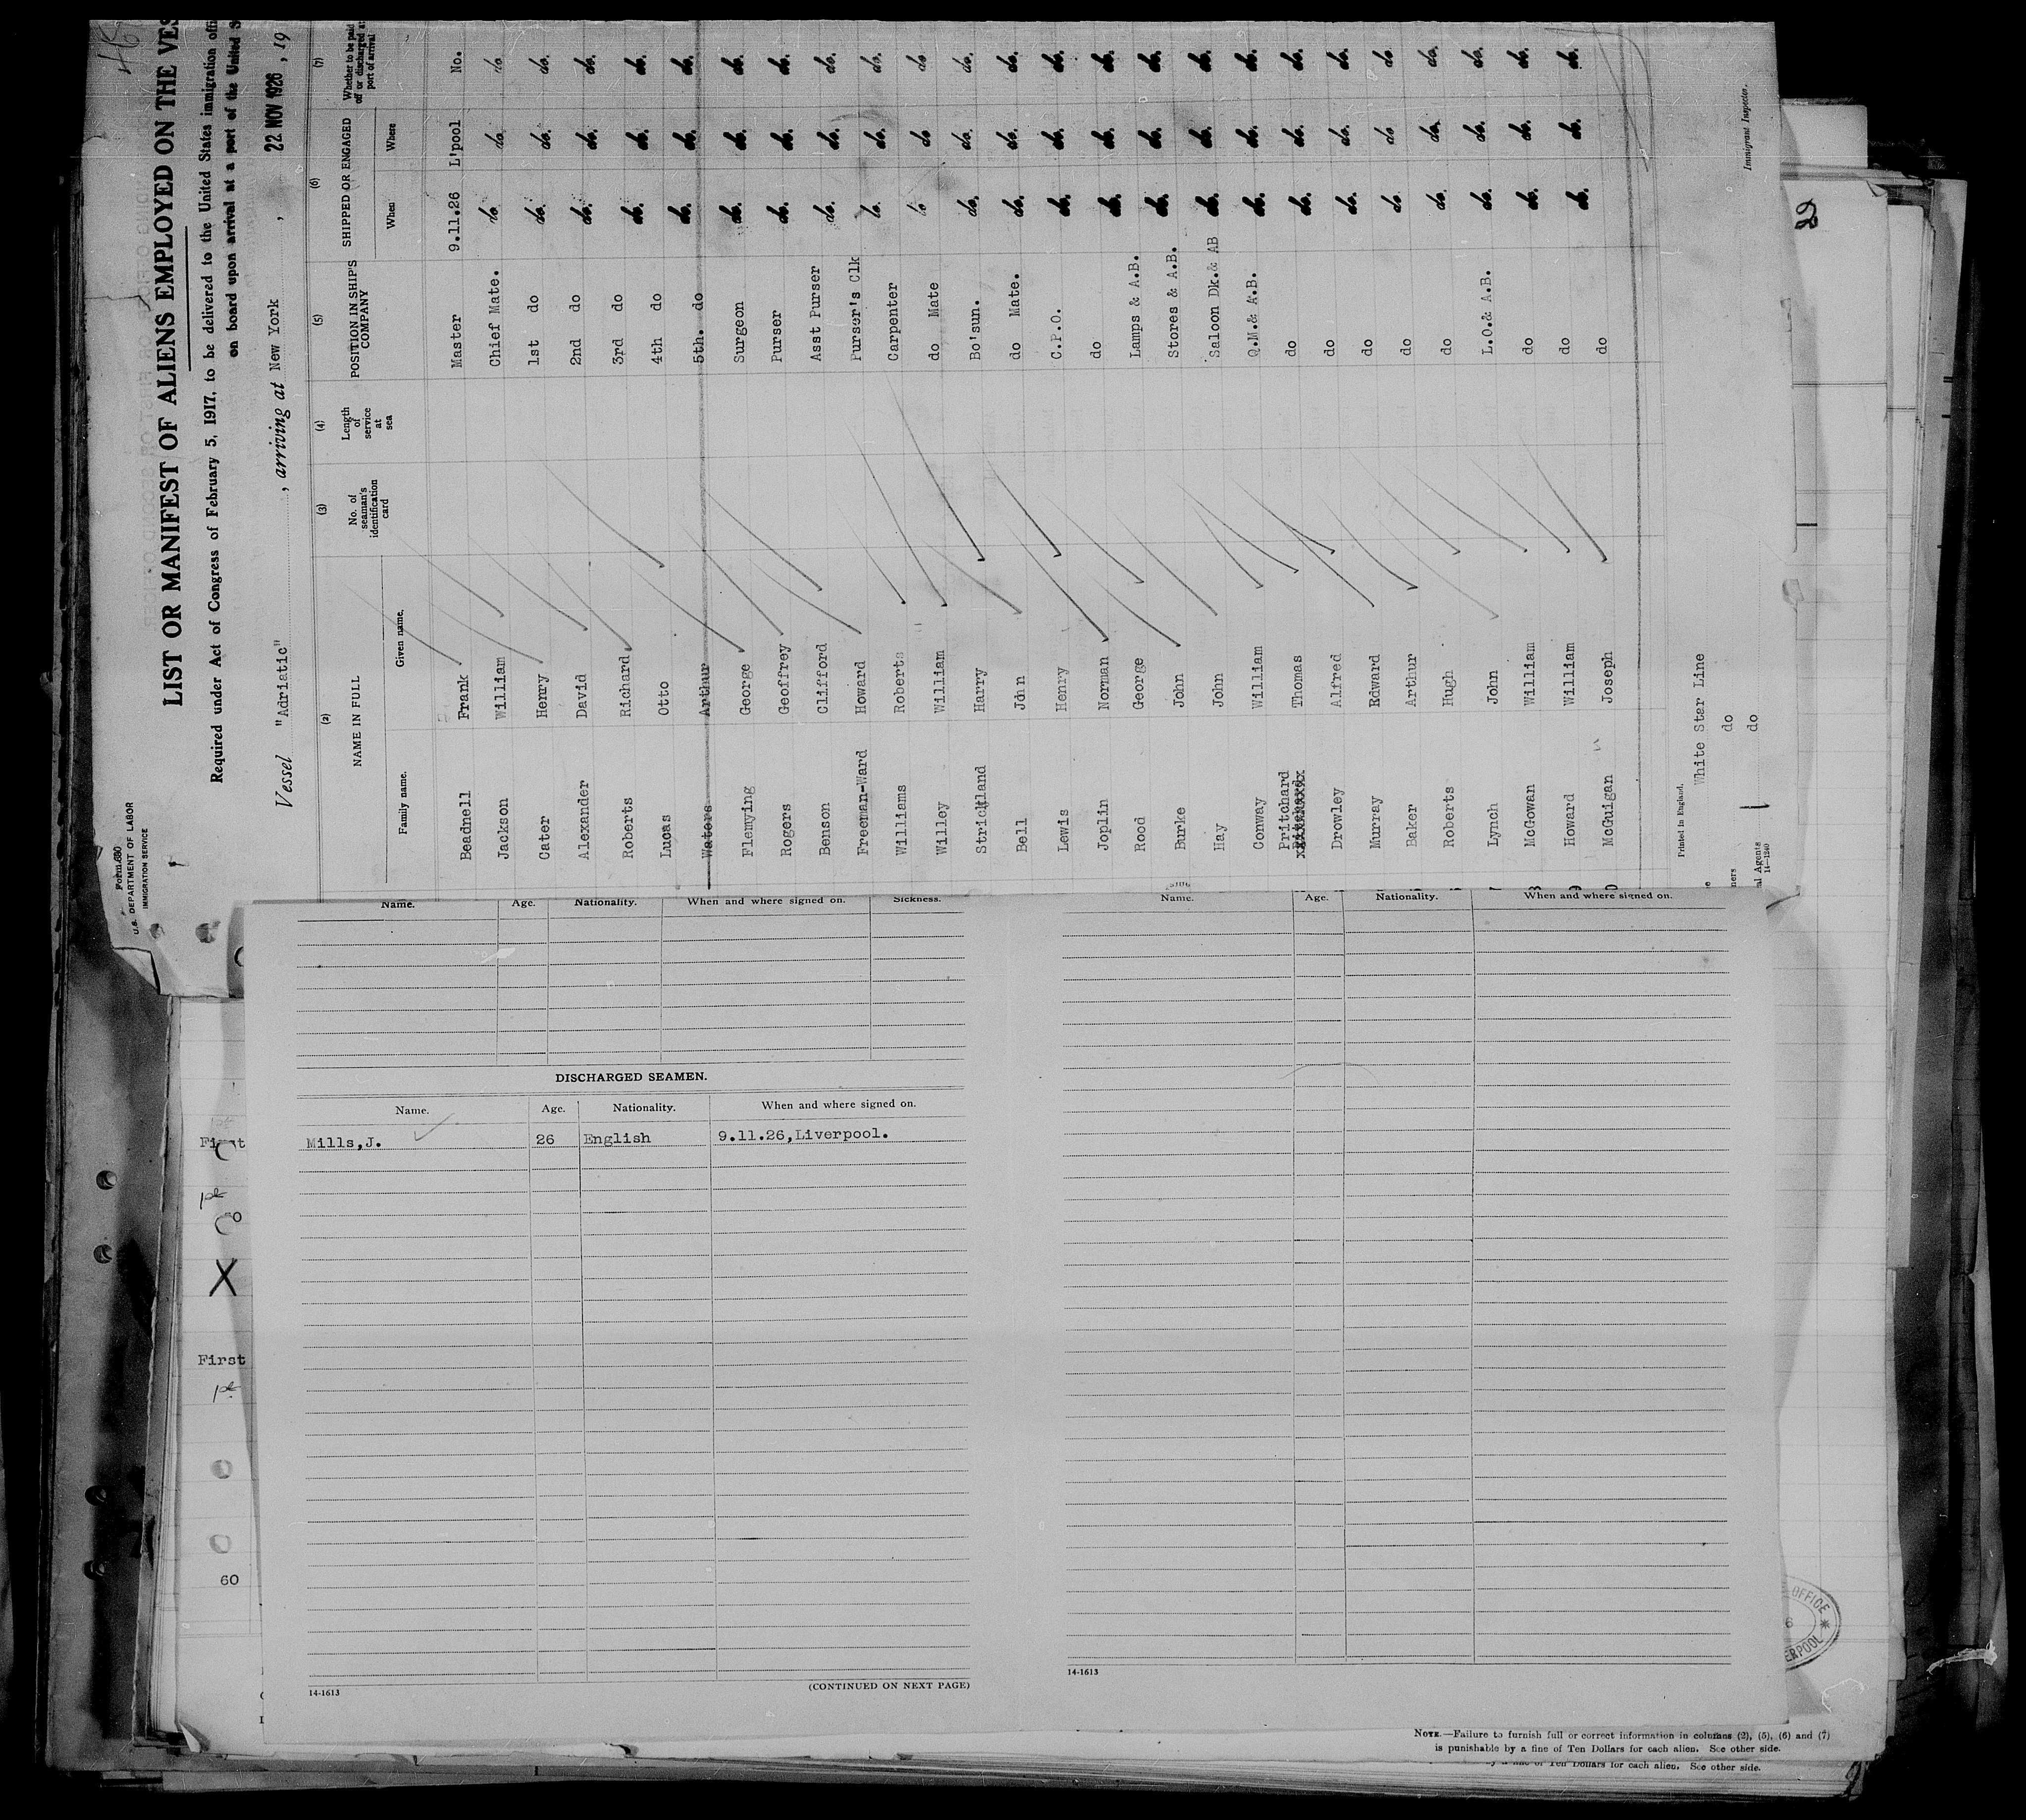 Form 680
U.S. DEPARTMENT OF LABOR
IMMIGRATION SERVICE
LIST OR MANIFEST OF ALIENS EMPLOYED ON THE VES
Required under Act of Congress of February 5, 1917, to be delivered to the United States immigration offi
on board upon arrival at a port of the United S
Vessel "Adriatic" , arriving at New York , 22 NOV 1926 , 19
(2) (3) (4) (5) (6) (7)
NAME IN FULL No. of seaman's identification card Length of service at sea POSITION IN SHIP'S COMPANY SHIPPED OR ENGAGED Whether to be paid off or discharged at port of arrival
Family name. Given name. When Where
Beadnell Frank Master 9.11.26 L'pool No.
Jackson William Chief Mate. do do do
Cater Henry 1st do do. do. do.
Alexander David 2nd do do. do. do.
Roberts Richard 3rd do do. do. do.
Lucas Otto 4th do do. do. do.
Waters Arthur 5th. do
Flemying George Surgeon do. do. do.
Rogers Geoffrey Purser do. do. do.
Benson Clifford Asst Purser do. do. do.
Freeman-Ward Howard Purser's Clk do. do. do.
Williams Roberts Carpenter do do do
Willey William do Mate do. do. do.
Strickland Harry Bo'sun. do. do. do.
Bell John do Mate. do. do. do.
Lewis Henry C.P.O. do. do. do.
Joplin Norman do do. do. do.
Rood George Lamps & A.B. do. do. do.
Burke John Stores & A.B. do. do. do.
Hay John Saloon Dk.& AB do. do. do.
Conway William Q.M.& A.B. do. do. do.
Pritchard Thomas do do. do. do.
Drowley Alfred do do. do. do.
Murray Edward do do. do do
Baker Arthur do do. do. do.
Roberts Hugh do do. do. do.
Lynch John L.O.& A.B. do. do. do.
McGowan William do do. do. do.
Howard William do
McGuigan Joseph do
Printed in England.
White Star Line
do
do
al Agents
14-1240
Immigrant Inspector.
Name. Age. Nationality. When and where signed on. Sickness.
DISCHARGED SEAMEN.
Name. Age. Nationality. When and where signed on.
Mills,J. 26 English 9.11.26,Liverpool.
14-1613
(CONTINUED ON NEXT PAGE)
Name. Age. Nationality. When and where signed on.
14-1613
First
X
First
60
OFFICE
ERPOOL
NOTE.—Failure to furnish full or correct information in columns (2), (5), (6) and (7)
is punishable by a fine of Ten Dollars for each alien. See other side.
by a fine of Ten Dollars for each alien. See other side.